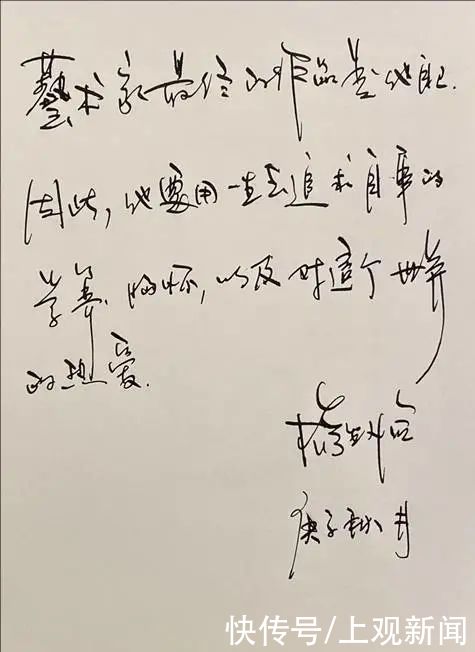 藝术家最终的作品是他自己.
因此,他要用一生去追求自身的
学养、胸怀,以及对这个世界
的热爱.
庚子秋月
快传号/上观新闻